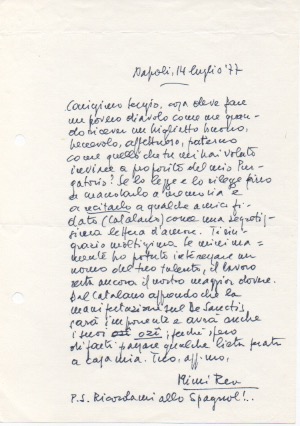 Napoli, 14 luglio '77
Carissimo Sergio, cosa deve fare
un povero diavolo come me quan-
do riceve un biglietto buono,
benevolo, affettuoso, paterno
come quello che tu mi hai voluto
inviare a proposito del mio Pur-
gatorio? Se lo legge e lo rilegge fino
di mandarlo a memoria e
a recitarlo a qualche amico fi-
dato (Catalano) come una segretis-
sima lettera d'amore. Ti rin-
grazio moltissimo. Se minima=
mente ho potuto interessare un
uomo del tuo talento, il lavoro
resta ancora il nostro maggior dovere.
Dal Catalano apprendo che la
manifestazione sul De Sanctis
sarà imponente e avrà anche
i suoi ozi, perché spero
di farti passare qualche lieta serata
a casa mia. Tuo, aff.mo,
Mimì Rea
P.S. Ricordami allo Spagnol!..